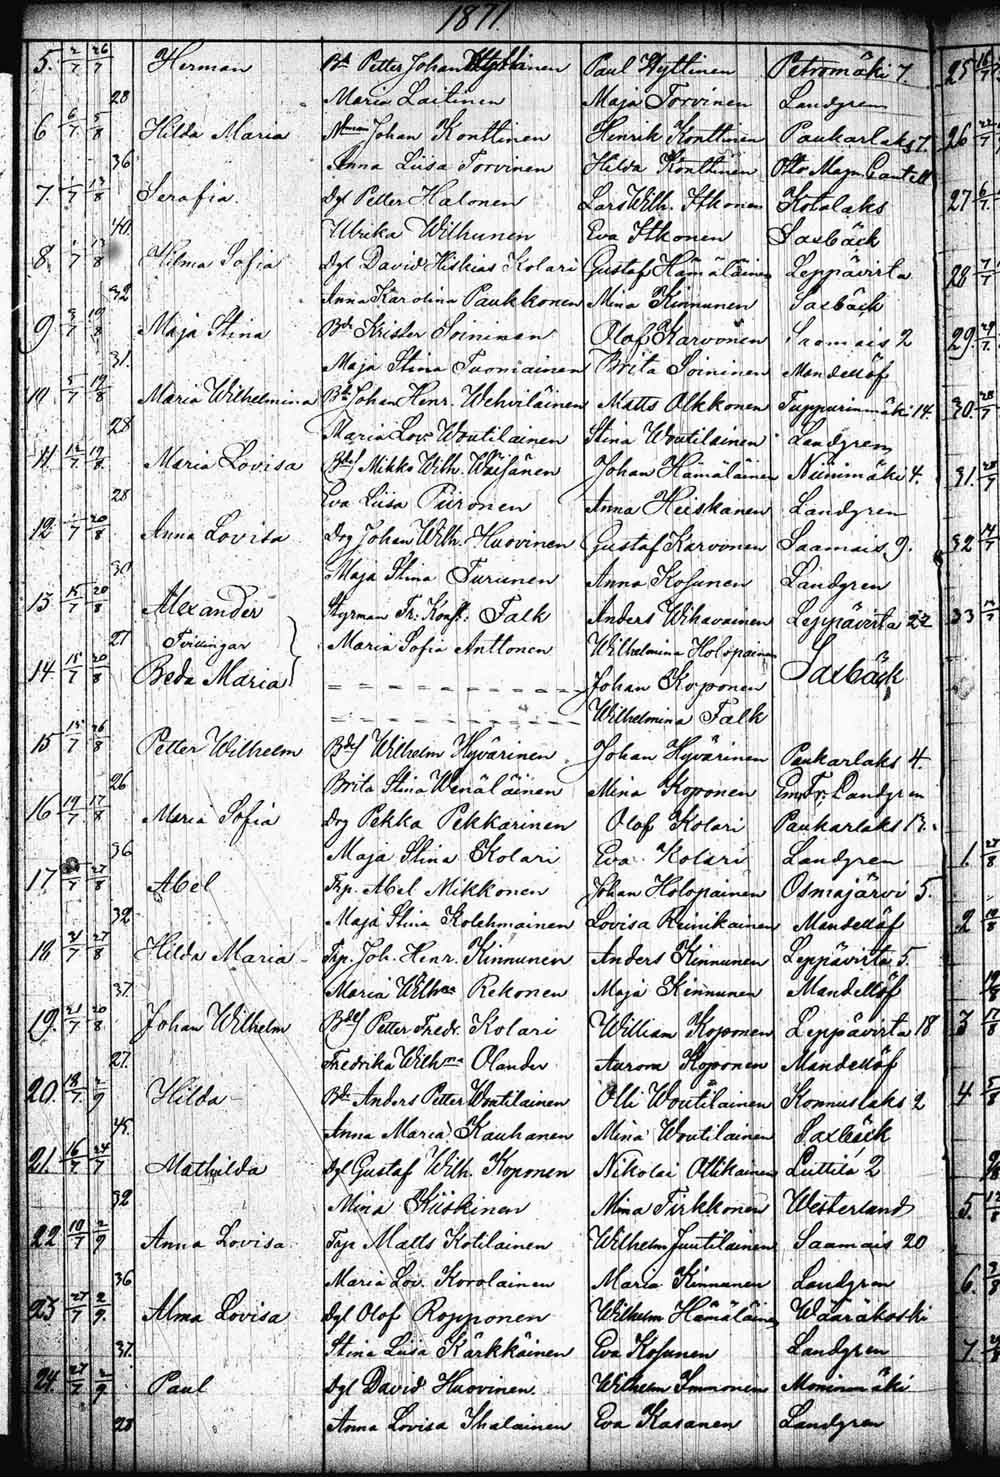 1871.
5. 2/7 26/7 Herman Bd Petter Johan Hyttinen Paul Hyttinen Petromäki 7.
28 Maria Laitinen Maja Torvinen Landgren
6 6/7 5/8 Hilda Maria Johan Konttinen Henrik Konttinen Paukarlaks 7.
36 Anna Liisa Torvinen Hilda Konttinen Otto Magn. Cantell
7. 1/7 13/8 Serafia. Dgl Petter Halonen Lars Wilh. Itkonen Kotalaks
40. Ulrika Wilhunen Eva Itkonen Saxbäck
8. 1/7 13/8 Hilma Sofia Dgl David Hiskias Kolari Gustaf Hämäläinen Leppävirta
32 Anna Karolina Paukkonen Mina Kinnunen Saxbäck
9 3/7 19/8 Maja Stina Bd Krister Soininen Olof Karvonen Saamais 2
31. Maja Stina Tuomainen Brita Soininen Mandellöf
10. 5/7 19/8 Maria Wilhelmina Bd Johan Henr. Wehviläinen Matts Olkkonen Tuppurinmäki 14.
28 Maria Lov. Woutilainen Stina Woutilainen Landgren
11. 12/7 19/8 Maria Lovisa Mikko Wilh. Wäisänen Johan Hämäläinen Niinimäki 4.
28 Eva Liisa Piironen Anna Heiskanen Landgren
12. 1/7 20/8 Anna Lovisa Drg Johan Wilh. Huovinen Gustaf Karvonen Saamais 9.
30 Maja Stina Turunen Anna Kosunen Landgren
13 15/7 20/8 Alexander Styrman Fr. Konst: Falk Anders Wihavainen Leppävirta 22
27 Tvillingar Maria Sofia Anttonen Wilhelmina Holopainen
14 15/7 20/8 Beda Maria - - - - - - - Johan Koponen Saxbäck
- - - - - - - Wilhelmina Falk
15 15/7 26/8 Petter Wilhelm Wilhelm Hyvärinen Johan Hyvärinen Paukarlaks 4.
26 Brita Stina Wenäläinen Mina Koponen Em. Fr. Landgren
16 19/7 17/8 Maria Sofia Drg Pekka Pekkarinen Olof Kolari Paukarlaks
36 Maja Stina Kolari Eva Kolari Landgren
17. 27/8 Abel Trp. Abel Mikkonen Johan Holopainen Osmajärvi 5.
32 Maja Stina Kolehmainen Lovisa Reinikainen Mandellöf
18 21/7 27/8 Hilda Maria Trp. Joh. Henr. Kinnunen Anders Kinnunen Leppävirta 5.
37. Maria Wilhna Rekonen Maja Kinnunen Mandellöf
19. 21/7 20/8 Johan Wilhelm Petter Fredr. Kolari William Koponen Leppävirta 18
27. Fredrika Wilhna Olander Aurora Koponen Mandellöf
20. 18/7 2/9 Hilda Bd Anders Petter Woutilainen Olli Woutilainen Konnuslaks 2
45. Anna Maria Kauhanen Mina Woutilainen Saxbäck
21. 16/7 24/7 Mathilda Dgl Gustaf Wilh. Koponen Nikolai Ollikainen Luttila 2
32 Mina Kiiskinen Mina Tirkkonen Westerlund
22 10/7 2/9 Anna Lovisa Trp Matts Kotilainen Wilhelm Juutilainen Saamais 20
36 Maria Lov. Korolainen Maria Kinnunen Landgren
23 27/7 2/9. Alma Lovisa Dgl Olof Ropponen Wilhelm Hämäläinen Wääräkoski
37. Stina Liisa Kärkkäinen Eva Kosunen Landgren
24. 27/7 2/9 Paul Dgl David Huovinen Wilhelm Immonen Moninmäki
23 Anna Lovisa Ihalainen Eva Kasanen Landgren
25 16/7
26 22/7
27 6/7
28 7/7
29. 29/7
30. 28/7
31. 28/7
32 14/7
33
1. 27/8
2
3 17/8
4 5/8
5.
6.
7.